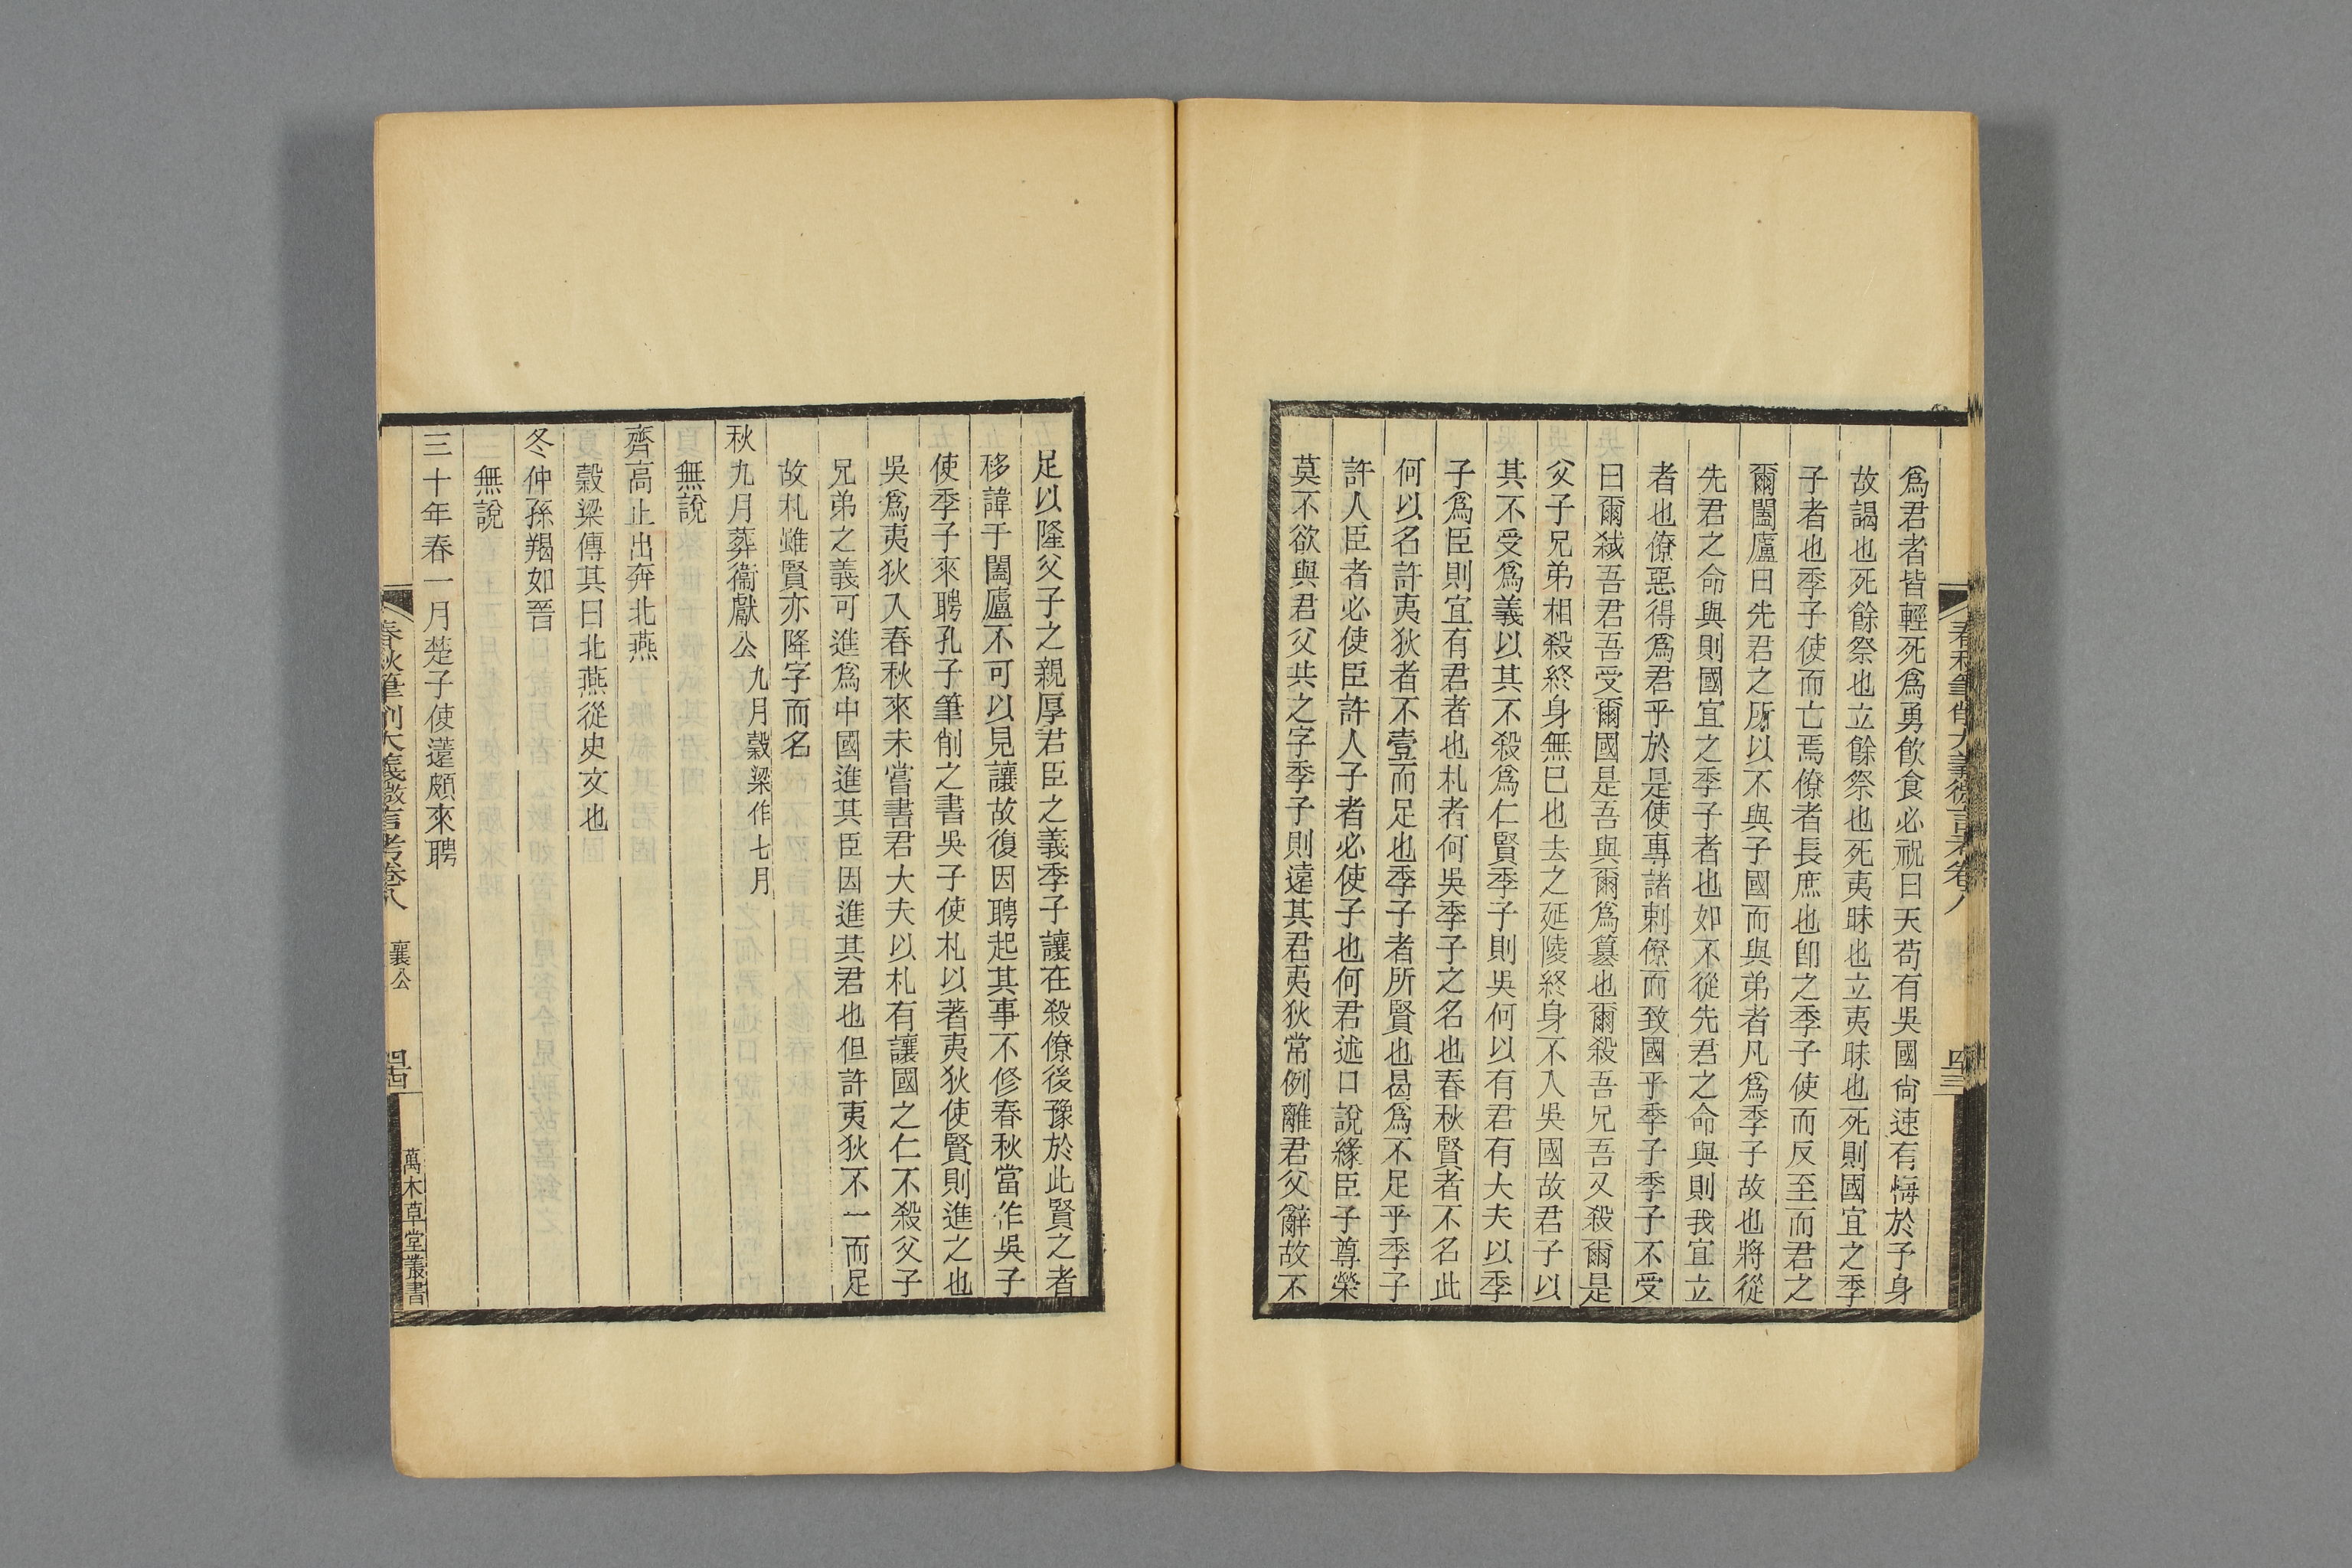 春秋筆削大義微言考卷八
四三
爲君者皆輕死爲勇飲食必祝曰天苟有吳國尙速有悔於予身
故謁也死餘祭也立餘祭也死夷昧也立夷昧也死則國宜之季
子者也季子使而亡焉僚者長庶也卽之季子使而反至而君之
爾闔廬曰先君之所以不與子國而與弟者凡爲季子故也將從
先君之命與則國宜之季子者也如不從先君之命與則我宜立
者也僚惡得爲君乎於是使專諸刺僚而致國乎季子季子不受
曰爾弒吾君吾受爾國是吾與爾爲篡也爾殺吾兄吾又殺爾是
父子兄弟相殺終身無已也去之延陵終身不入吳國故君子以
其不受爲義以其不殺爲仁賢季子則吳何以有君有大夫以季
子爲臣則宜有君者也札者何吳季子之名也春秋賢者不名此
何以名許夷狄者不壹而足也季子者所賢也曷爲不足乎季子
許人臣者必使臣許人子者必使子也何君述口說緣臣子尊榮
莫不欲與君父共之字季子則遠其君夷狄常例離君父辭故不
足以隆父子之親厚君臣之義季子讓在殺僚後豫於此賢之者
移諱于闔廬不可以見讓故復因聘起其事不修春秋當作吳子
使季子來聘孔子筆削之書吳子使札以著夷狄使賢則進之也
吳爲夷狄入春秋來未嘗書君大夫以札有讓國之仁不殺父子
兄弟之義可進爲中國進其臣因進其君也但許夷狄不一而足
故札雖賢亦降字而名
秋九月葬衞獻公九月穀梁作七月
無說
齊高止出奔北燕
穀梁傳其曰北燕從史文也
冬仲孫羯如晉
無說
三十年春一月楚子使薳頗來聘
春秋筆削大義微言考卷八
襄公
四四
萬木草堂叢書